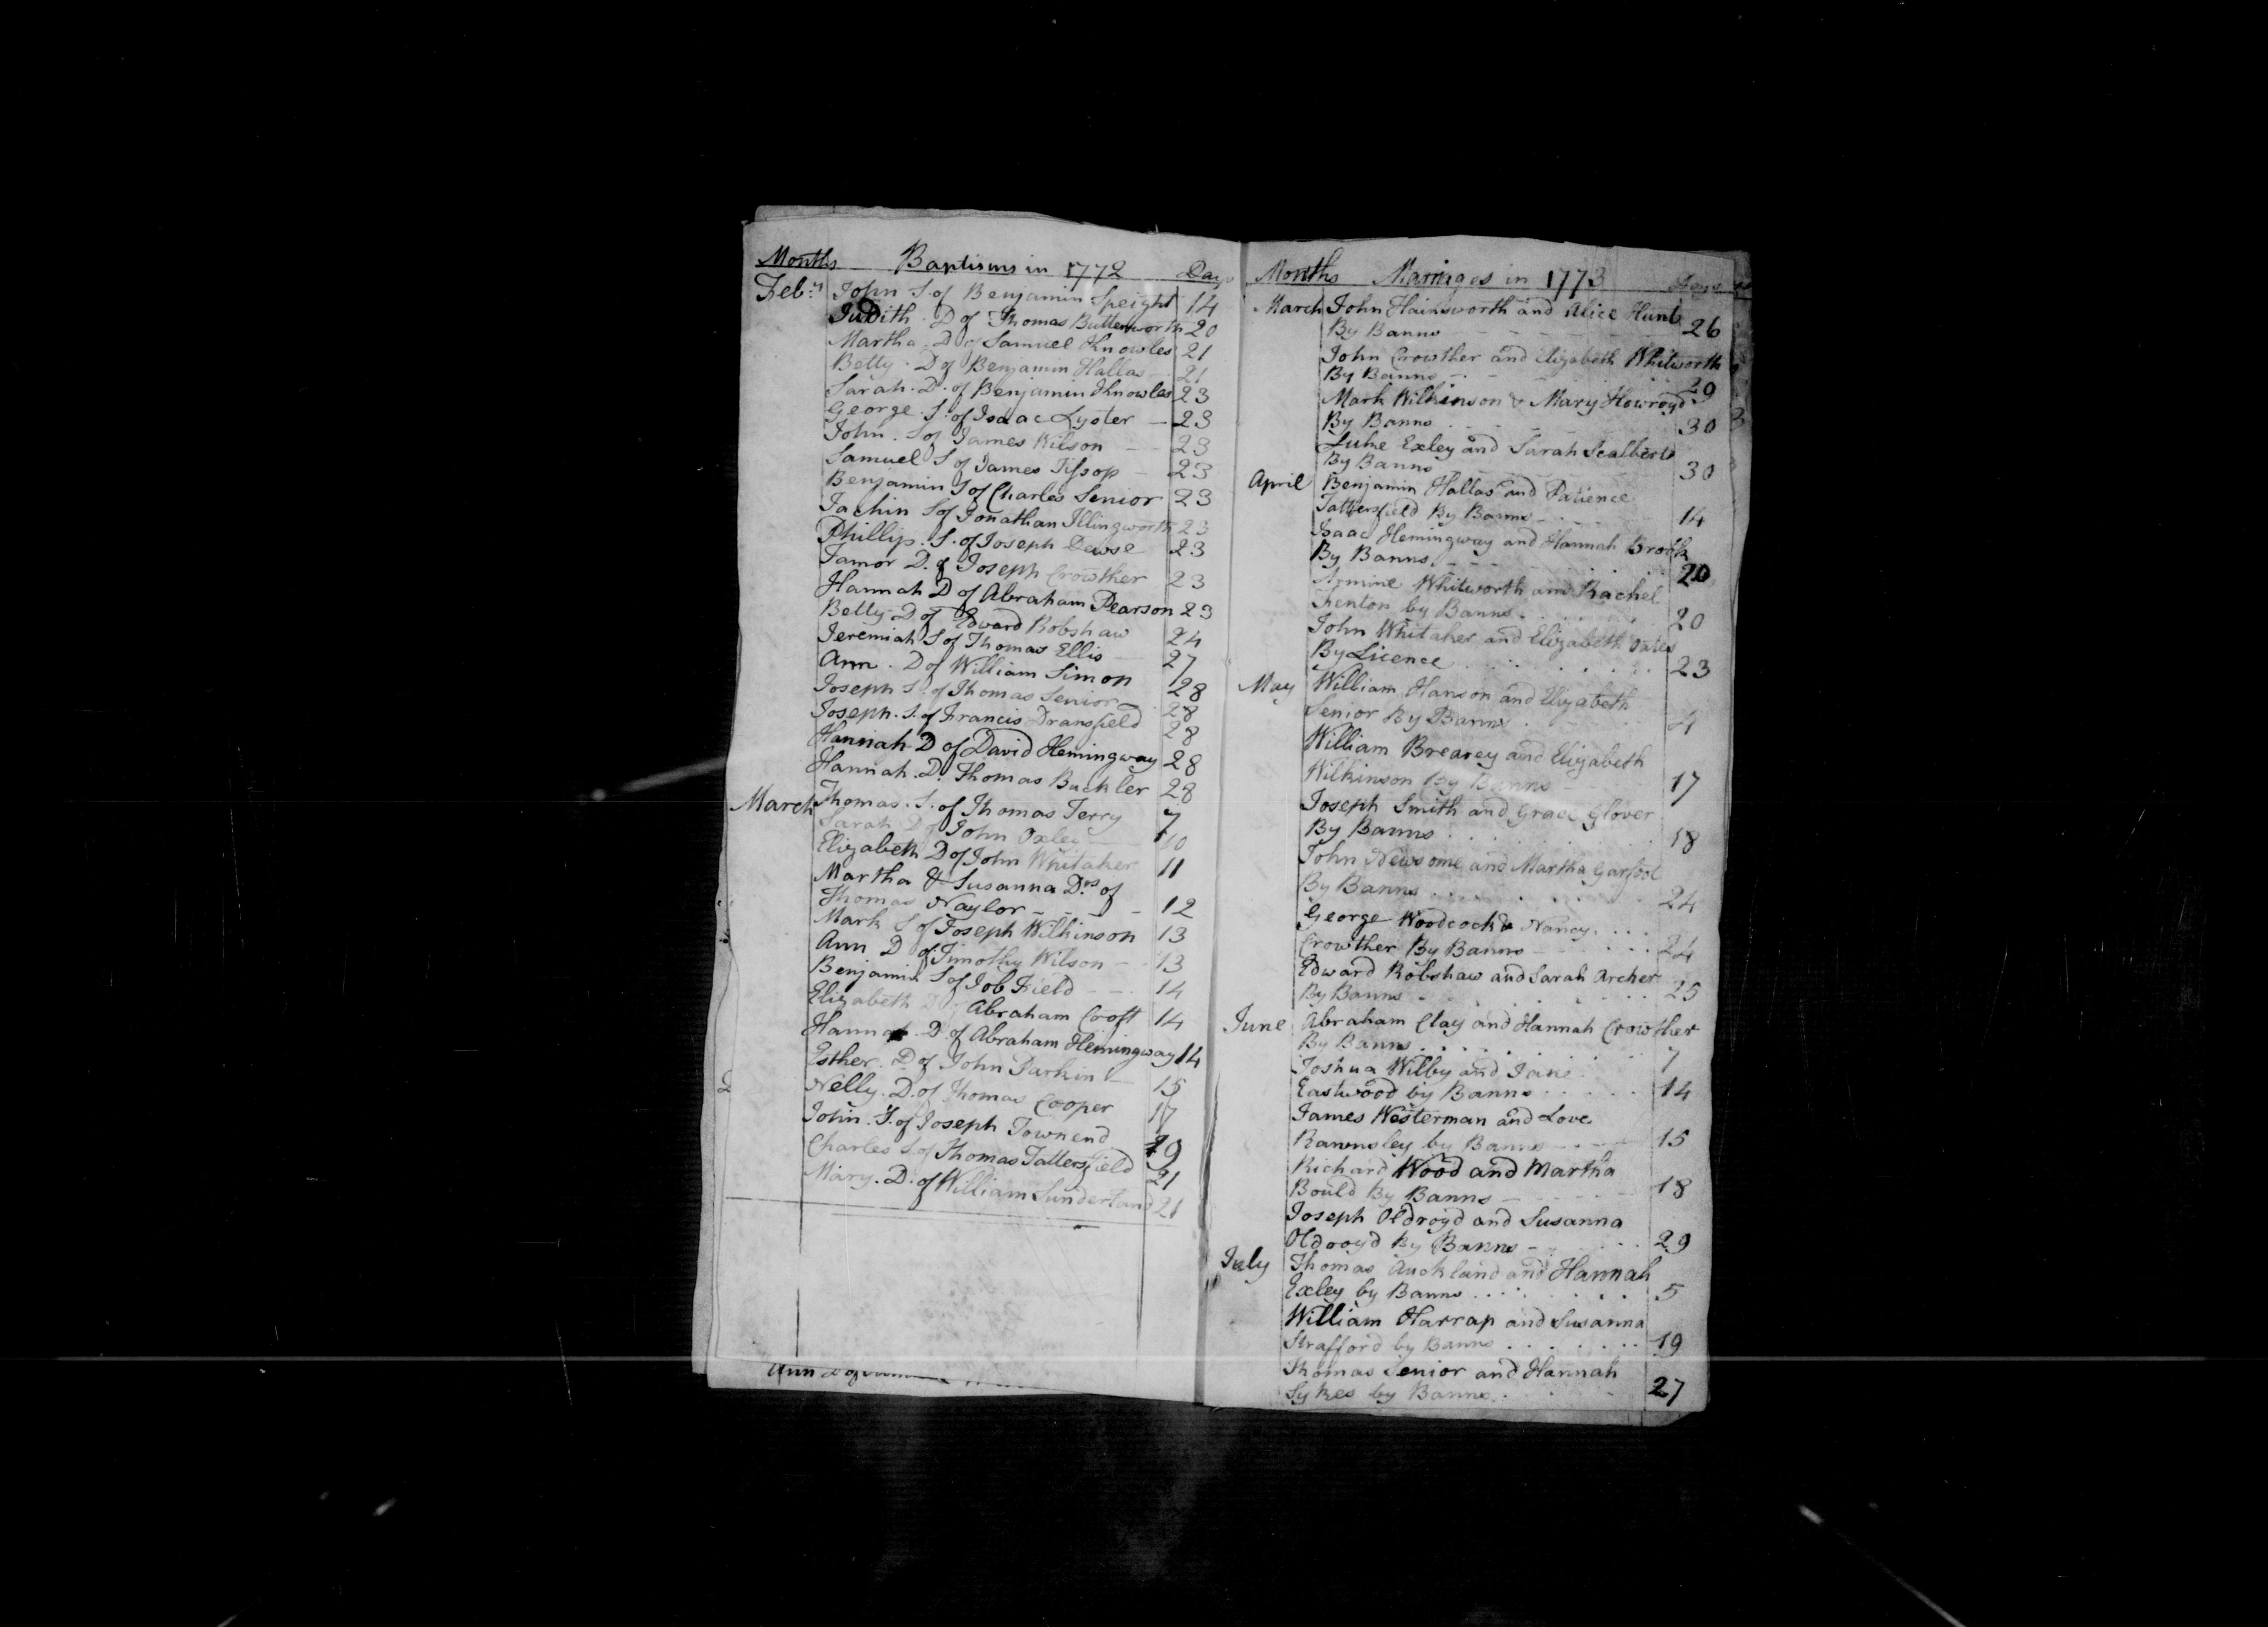 Months Baptisms in 1772 Days
Feb:ry John S. of Benjamin Speight 14
Judith. D of Thomas Butterworth 20
Martha. D of Samuel Knowles 21
Betty. D of Benjamin Hallas 21
Sarah. D. of Benjamin Knowles 23
George. S. of Isaac Lyster 23
John. S of James Wilson 23
Samuel S of James Jifsop 23
Benjamin S of Charles Senior 23
Jachin S of Jonathan Illingworth 23
Phillip. S. of Joseph Dewse 23
Tamor D. of Joseph Crowther 23
Hannah D of Abraham Pearson 23
Betty D of Edward Robshaw 24
Jeremiah S of Thomas Ellis 27
Ann. D of William Simon 28
Joseph S. of Thomas Senior 28
Joseph. S. of Francis Dransfield 28
Hannah D of David Hemingway 28
Hannah. D. Thomas Buckler 28
March Thomas. S. of Thomas Terry 7
Sarah D of John Oxley 10
Elizabeth D of John Whitaker 11
Martha & Susanna Drs of
Thomas Naylor 12
Mark S of Joseph Wilkinson 13
Ann D of Timothy Wilson 13
Benjamin S of Job Field 14
Elizabeth D of Abraham Croft 14
Hannah D of Abraham Hemingway 14
Esther. D of John Parkin 15
Nelly. D. of Thomas Cooper 17
John. S. of Joseph Townend 19
Charles S. of Thomas Tattersfield 21
Mary. D. of William Sunderland 21
Ann D of
Months Marriages in 1773 Days
March John Hainsworth and Alice Hunt
By Banns 26
John Crowther and Elizabeth Whitworth
By Banns 29
Mark Wilkinson & Mary Howroyd
By Banns 30
Luke Exley and Sarah Scalbert
By Banns 30
April Benjamin Hallas and Patience
Tattersfield By Banns 14
Isaac Hemingway and Hannah Brook
By Banns 20
Armine Whitworth and Rachel
Fenton by Banns 20
John Whitaker and Elizabeth Oates
By Licence 23
May William Hanson and Elizabeth
Senior By Banns 4
William Brearey and Elizabeth
Wilkinson By Banns 17
Joseph Smith and Grace Glover
By Banns 18
John Newsome and Martha Garfoot
By Banns 24
George Woodcock & Nancy
Crowther By Banns 24
Edward Robshaw and Sarah Archer
By Banns 25
June Abraham Clay and Hannah Crowther
By Banns 7
Joshua Wilby and Jane
Eastwood by Banns 14
James Westerman and Love
Rawnsley by Banns 15
Richard Wood and Martha
Bould By Banns 18
Joseph Oldroyd and Susanna
Oldroyd By Banns 29
July Thomas Auckland and Hannah
Exley by Banns 5
William Harrap and Susanna
Strafford by Banns 19
Thomas Senior and Hannah
Sykes by Banns 27